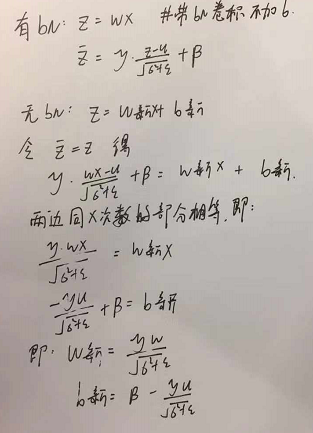 有bn: z = wx #带bn卷积不加b.
z̄ = γ·(z-u)/√(б²+ε) + β
无bn: z = w新x + b新
令 z̄ = z 得
γ·(wx-u)/√(б²+ε) + β = w新x + b新.
两边同x次数的部分相等,即:
γ·wx/√(б²+ε) = w新x
-γu/√(б²+ε) + β = b新
即: w新 = γw/√(б²+ε)
b新 = β - γu/√(б²+ε)